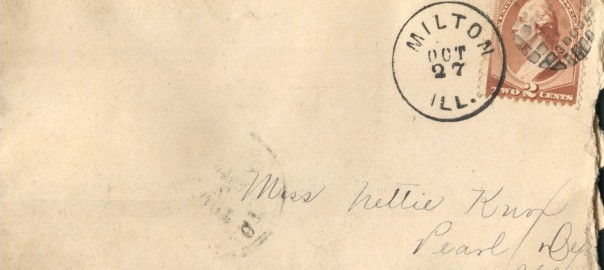 MILTON
OCT
27
ILL.
TWO 2 CENTS
Miss Nettie Knox
Pearl